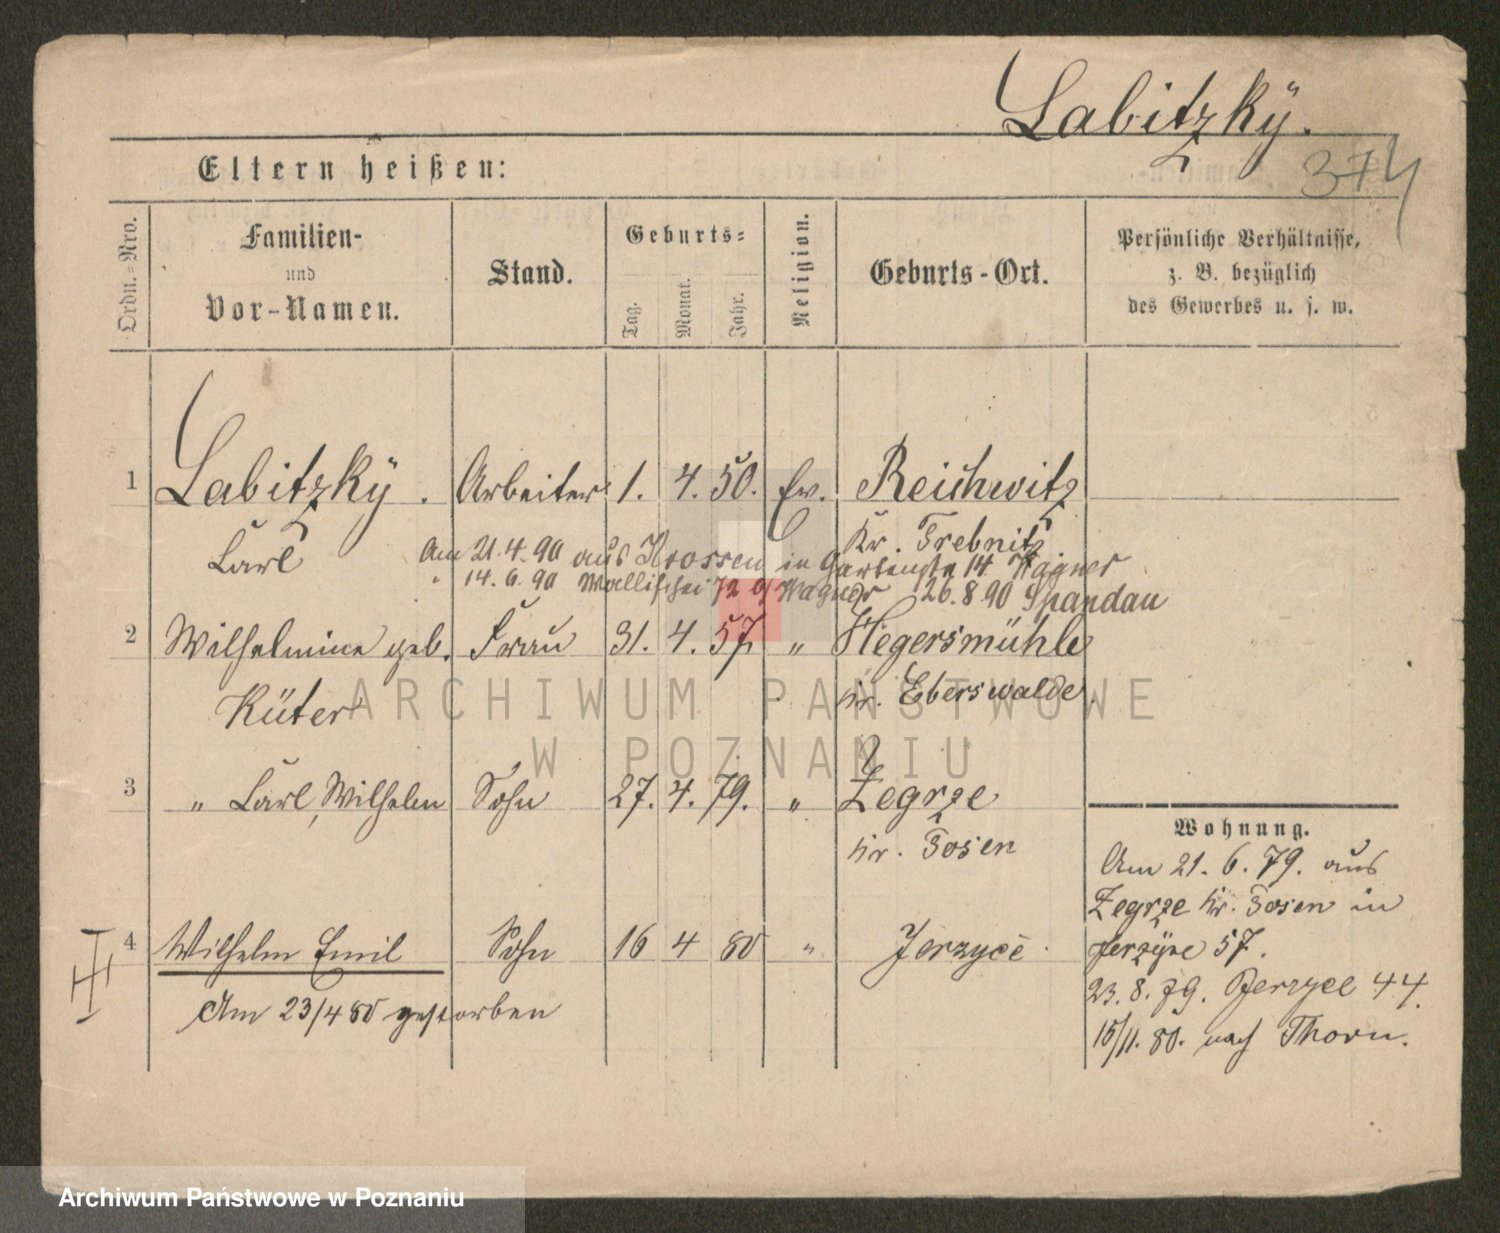 Labitzkÿ.
374
Eltern heißen:
Ordn.=Nro.
Familien-
und
Vor-Namen.
Stand.
Geburts=
Tag.
Monat.
Jahr.
Religion.
Geburts-Ort.
Persönliche Verhältnisse,
z. B. bezüglich
des Gewerbes u. s. w.
1 Labitzkÿ. Arbeiter 1. 4. 50. Ev. Reichwitz
Carl Kr. Trebnitz
Am 21.4.90 aus Krossen in Gartenstr 14 Wagner
" 14.6.90 Wallischei 72 b/ Wagner 26.8.90 Spandau
2 Wilhelmine geb. Frau 31. 4. 57. " Hegersmühle
Küter Kr. Eberswalde
3 " Carl, Wilhelm Sohn 27. 4. 79. " Zegrze
Kr. Posen
Wohnung.
Am 21. 6. 79. aus
Zegrze Kr. Posen in
4 Wilhelm Emil Sohn 16 4 80 " Jerzyce
Jerzyce 57.
Am 23/4 80 gestorben
23. 8. 79. Jerzyce 44.
15/11. 80. nach Thorn.
ARCHIWUM PAŃSTWOWE
W POZNANIU
Archiwum Państwowe w Poznaniu